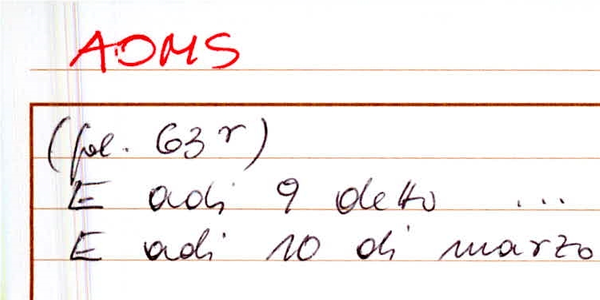 AOMS
(fol. 63 r)
E adi 9 detto ...
E adi 10 di marzo